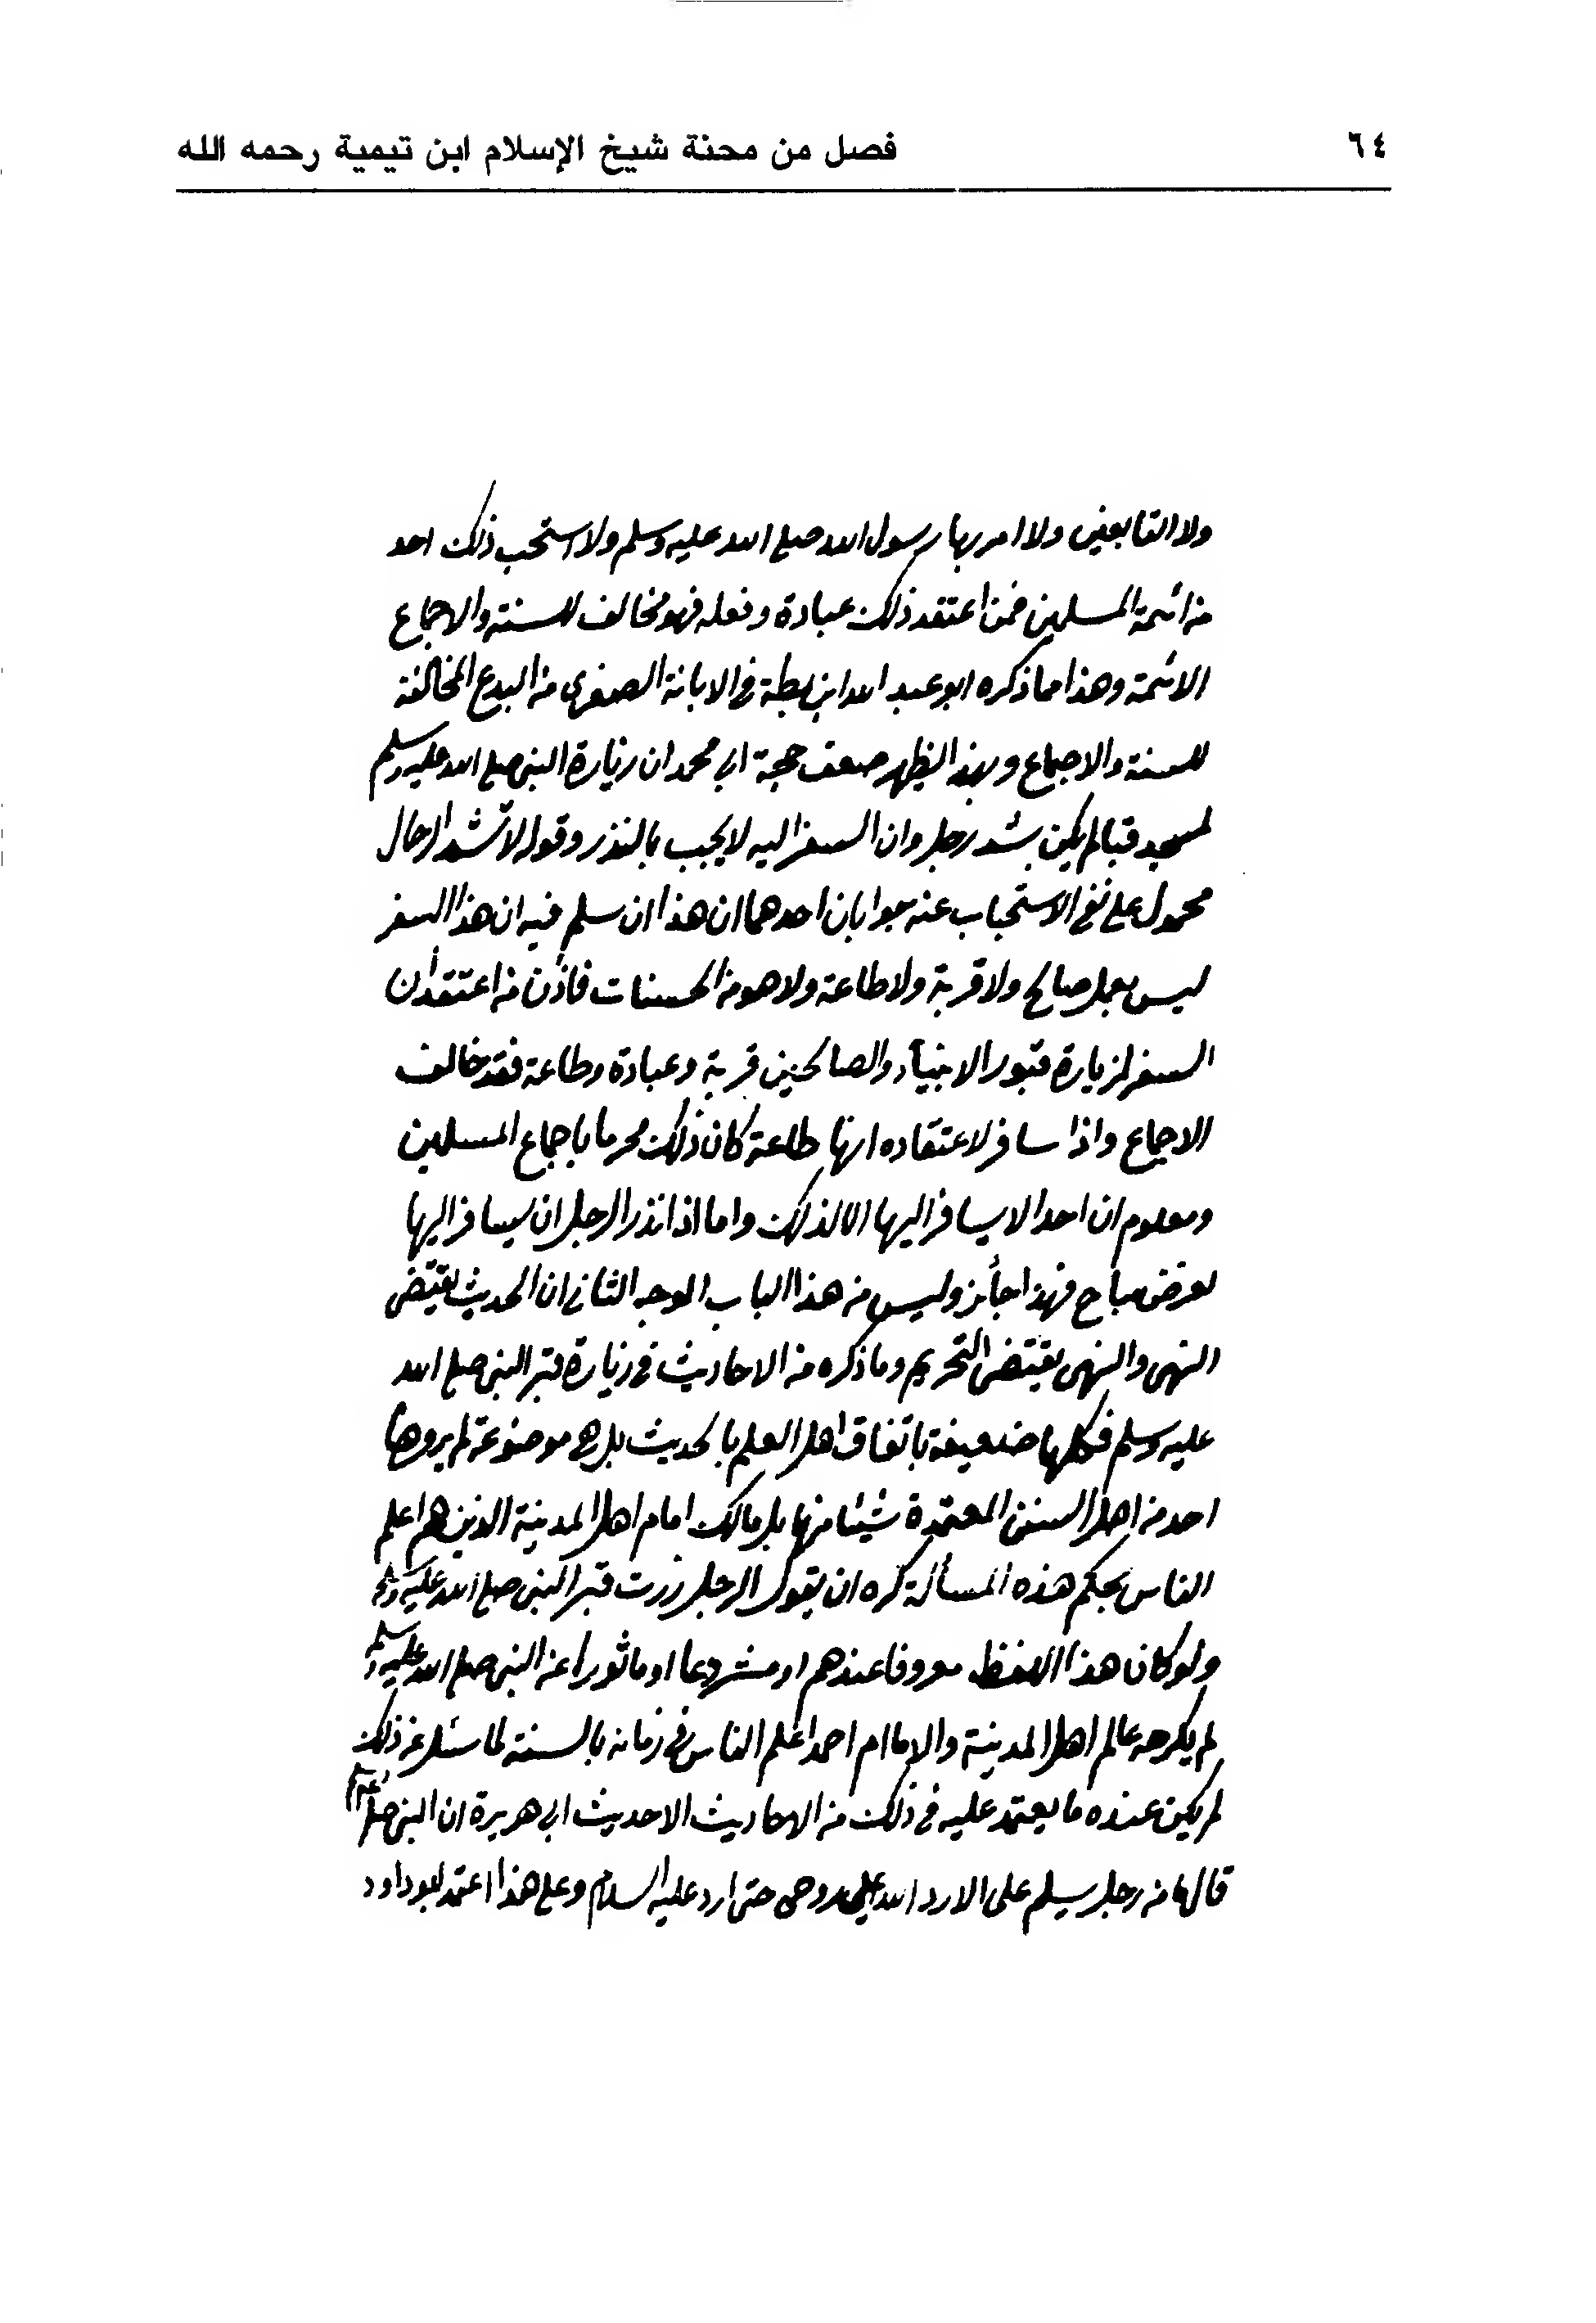 ٦٤ فصل من محنة شيخ الإسلام ابن تيمية رحمه الله
ولا التابعين ولا امر بها رسول الله صلى الله عليه وسلم ولا استحب ذلك احد
من ائمة المسلمين فمن اعتقد ذلك عبادة وفعله فهو مخالف للسنة والاجماع
الائمة وهذا مما ذكره ابو عبد الله ابن بطة في الابانة الصغرى من البدع المخالفة
للسنة والاجماع وبهذا يظهر ضعف حجة ابي محمد ان زيارة النبي صلى الله عليه وسلم
لمسجد قبا لم يكن بشد رحل وان السفر اليه لا يجب بالنذر وقوله لا تشد الرحال
محمول على نفي الاستحباب عنه جوابان احدهما ان هذا ان سلم فيه ان هذا السفر
ليس بعمل صالح ولا قربة ولا طاعة ولا هو من الحسنات فاذن من اعتقد أن
السفر لزيارة قبور الانبيآء والصالحين قربة وعبادة وطاعة فقد خالف
الاجماع واذا سافر لاعتقاده انها طاعة كان ذلك محرما باجماع المسلمين
ومعلوم ان احدا لا يسافر اليها الا لذلك واما اذا نذر الرجل ان يسافر اليها
لغرض مباح فهذا جأئز وليس من هذا الباب الوجه الثاني ان الحديث يقتضي
النهي والنهي يقتضي التحريم وما ذكره من الاحاديث في زيارة قبر النبي صلى الله
عليه وسلم فكلها ضعيفة باتفاق اهل العلم بالحديث بل هي موضوعة لم يروها
احد من اهل السنن المعتمدة شيئا منها بل مالك امام اهل المدينة الذين هم اعلم
الناس بحكم هذه المسألة كره ان يقول الرجل زرت قبر النبي صلى الله عليه وسلم
ولو كان هذا اللفظ معروفا عندهم او مشروعا او ماثورا عن النبي صلى الله عليه وسلم
لم يكرهه عالم اهل المدينة والاماام احمد اعلم الناس في زمانه بالسنة لما سئل عن ذلك
لم يكن عنده ما يعتمد عليه في ذلك من الاحاديث الا حديث ابي هريرة ان النبي صلى
قال ما من رجل يسلم على الا رد الله علي روحي حتى ارد عليه السلام وعلى هذا اعتمد ابو داود